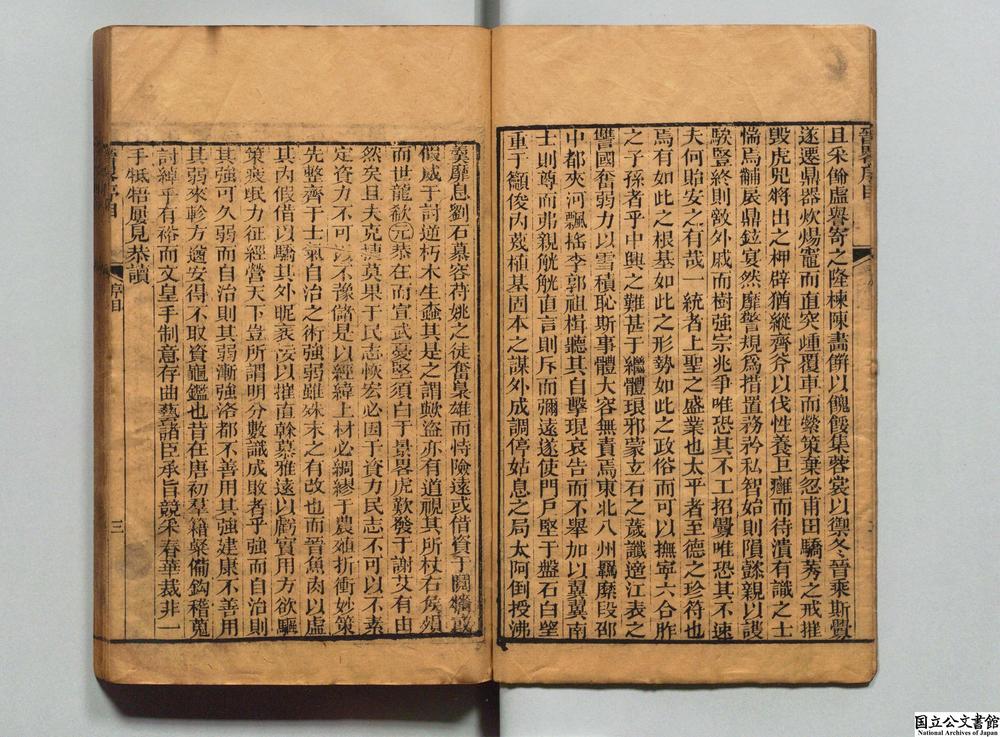 且采脩虛譽寄之隆棟陳畫餠以餽餒集蓉裳以禦冬晉乘斯釁
遂遷鼎器炊煬竈而直突踵覆車而縈策棄忽甫田驕莠之戒摧
毀虎兕將出之柙辟猶縱齊斧以伐性養巨癰而待潰有識之士
惴焉黼扆鼎鉉宴然靡警規爲措置務矜私智始則隕懿親以謏
駿豎終則散外戚而樹強宗兆爭唯恐其不工招釁唯恐其不速
夫何貽安之有哉一統者上聖之盛業也太平者至德之珍符也
焉有如此之根基如此之形勢如此之政俗而可以撫寧六合胙
之子孫者乎中興之難甚于繼體琅邪蒙立石之蔑讖遵江表之
讐國奮弱力以雪積恥斯事體大容無責焉東北八州羈縻段邵
中都夾河飄搖李郭祖楫聽其自擊現哀告而不舉加以翼翼南
士則尊而弗親觥觥直言則斥而彌遠遂使門戶堅于盤石白望
重于顧俊內蔑植基固本之謀外成調停姑息之局太阿倒授沸
羹靡息劉石慕容苻姚之徒奮梟雄而恃險遠或借資于鬭牆或
假威于討逆朽木生蠡其是之謂歟盜亦有道視其所杖右矦殞
而世龍欷元恭在而宣武憂堅須白于景畧虎歎發于謝艾有由
然矣且夫克捷莫果于民志恢宏必因于資力民志不可以不素
定資力不可以不豫儲是以經緯上材必綢繆于農殖折衝妙策
先整齊于士氣自治之術強弱雖殊未之有改也而晉魚肉以虛
其內假借以驕其外昵袤妄以摧直幹慕雅遠以戲實用方欲驅
策疲哤力征經營天下豈所謂明分數識成敗者乎強而自治則
其強可久弱而自治則其弱漸強洛都不善用其強建康不善用
其弱來軫方遒安得不取資龜鑑也昔在唐初羣籍粲備鈎稽蒐
討綽乎有裕而文皇手制意存曲藝諸臣承旨競采春華裁非一
手牴牾屢見恭讀
序目
三
国立公文書館
National Archives of Japan